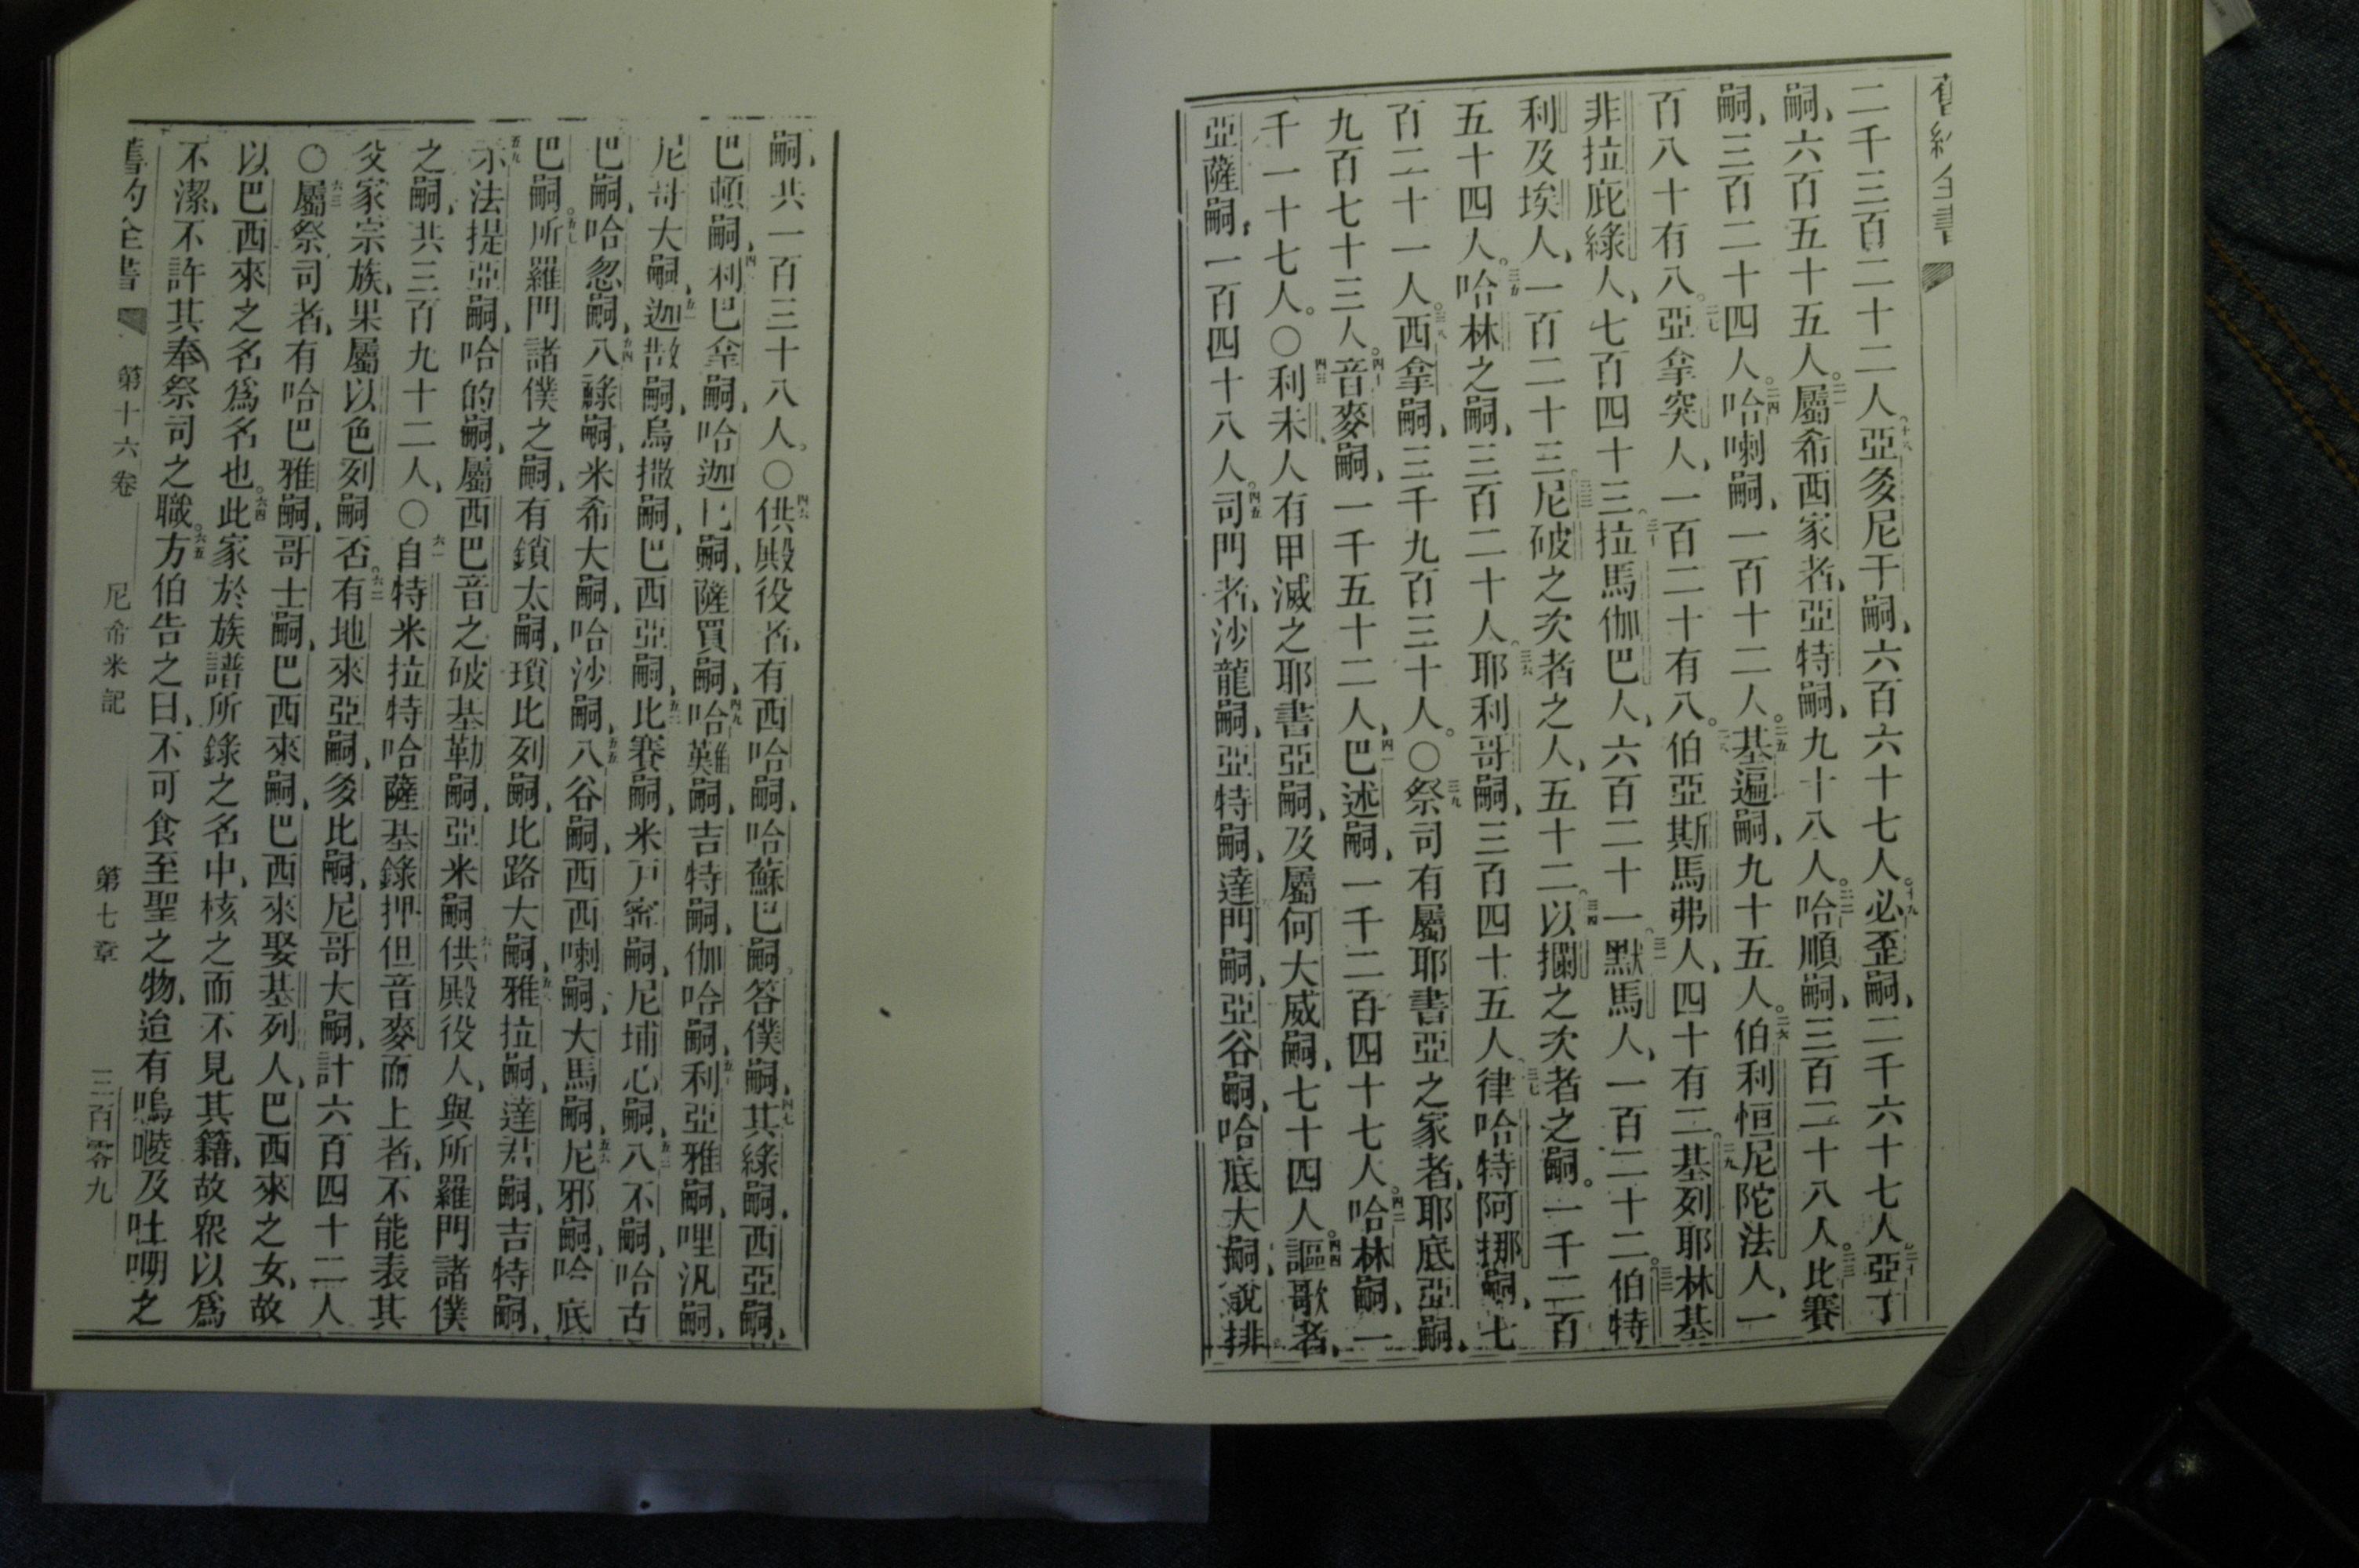 舊約全書
二千三百二十二人。十八亞多尼干嗣、六百六十七人。十九必歪嗣、二千六十七人。二十亞丁
嗣、六百五十五人。二一屬希西家者、亞特嗣、九十八人。二二哈順嗣、三百二十八人。二三比賽
嗣、三百二十四人。二四哈喇嗣、一百十二人。二五基遍嗣、九十五人。二六伯利恒尼陀法人、一
百八十有八。二七亞拿突人、一百二十有八。二八伯亞斯馬弗人、四十有二。二九基列耶林基
非拉庇綠人、七百四十三。三十拉馬伽巴人、六百二十一。三一默馬人、一百二十二。三二伯特
利及埃人、一百二十三。三三尼破之次者之人、五十二。三四以攔之次者之嗣。一千二百
五十四人。三五哈林之嗣、三百二十人。三六耶利哥嗣、三百四十五人、三七律哈特阿挪嗣、七
百二十一人。三八西拿嗣、三千九百三十人。〇三九祭司有屬耶書亞之家者、耶底亞嗣、
九百七十三人。四十音麥嗣、一千五十二人、四一巴述嗣、一千二百四十七人。四二哈林嗣、一
千一十七人。〇四三利未人有甲滅之耶書亞嗣、及屬何大威嗣、七十四人。四四謳歌者、
亞薩嗣、一百四十八人。四五司門者、沙龍嗣、亞特嗣、達門嗣、亞谷嗣、哈底大嗣、說排
嗣、共一百三十八人。〇四六供殿役者、有西哈嗣、哈蘇巴嗣。答僕嗣、四七其綠嗣、西亞嗣、
巴頓嗣、四八利巴拿嗣、哈迦巴嗣、薩買嗣、四九哈難嗣、吉特嗣、伽哈嗣、五十利亞雅嗣、哩汛嗣、
尼哥大嗣、五一迦散嗣、烏撒嗣、巴西亞嗣、五二比賽嗣、米戶密嗣、尼埔心嗣、五三八不嗣、哈古
巴嗣、哈忽嗣、五四八綠嗣、米希大嗣、哈沙嗣、五五八谷嗣、西西喇嗣、大馬嗣、五六尼邪嗣、哈底
巴嗣。五七所羅門諸僕之嗣、有鎖太嗣、瑣比列嗣、比路大嗣、五八雅拉嗣、達君嗣、吉特嗣、
五九示法提亞嗣、哈的嗣、屬西巴音之破基勒嗣、亞米嗣、六十供殿役人、與所羅門諸僕
之嗣、共三百九十二人、〇六一自特米拉特哈薩基錄押但音麥而上者、不能表其
父家宗族、果屬以色列嗣否。六二有地來亞嗣、多比嗣、尼哥大嗣、計六百四十二人
〇六三屬祭司者、有哈巴雅嗣、哥士嗣、巴西來嗣、巴西來娶基列人、巴西來之女、故
以巴西來之名為名也。六四此家於族譜所錄之名中、核之而不見其籍、故衆以為
不潔、不許其奉祭司之職。六五方伯告之曰、不可食至聖之物、迨有嗚㖫及吐嘲之
舊約全書 第十六卷 尼希米記 第七章 三百零九